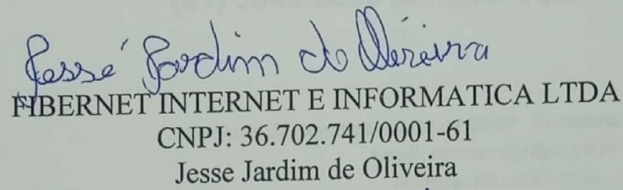 Jessé Jardim de Oliveira
FIBERNET INTERNET E INFORMATICA LTDA
CNPJ: 36.702.741/0001-61
Jesse Jardim de Oliveira